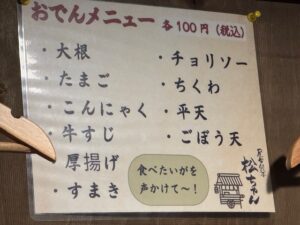 おでんメニュー 各100円(税込)
・大根
・たまご
・こんにゃく
・牛すじ
厚揚げ
・すまき
・チョリソー
・ちくわ
・平天
・ごぼう天
食べたいがを
声かけて〜!
松ちゃん